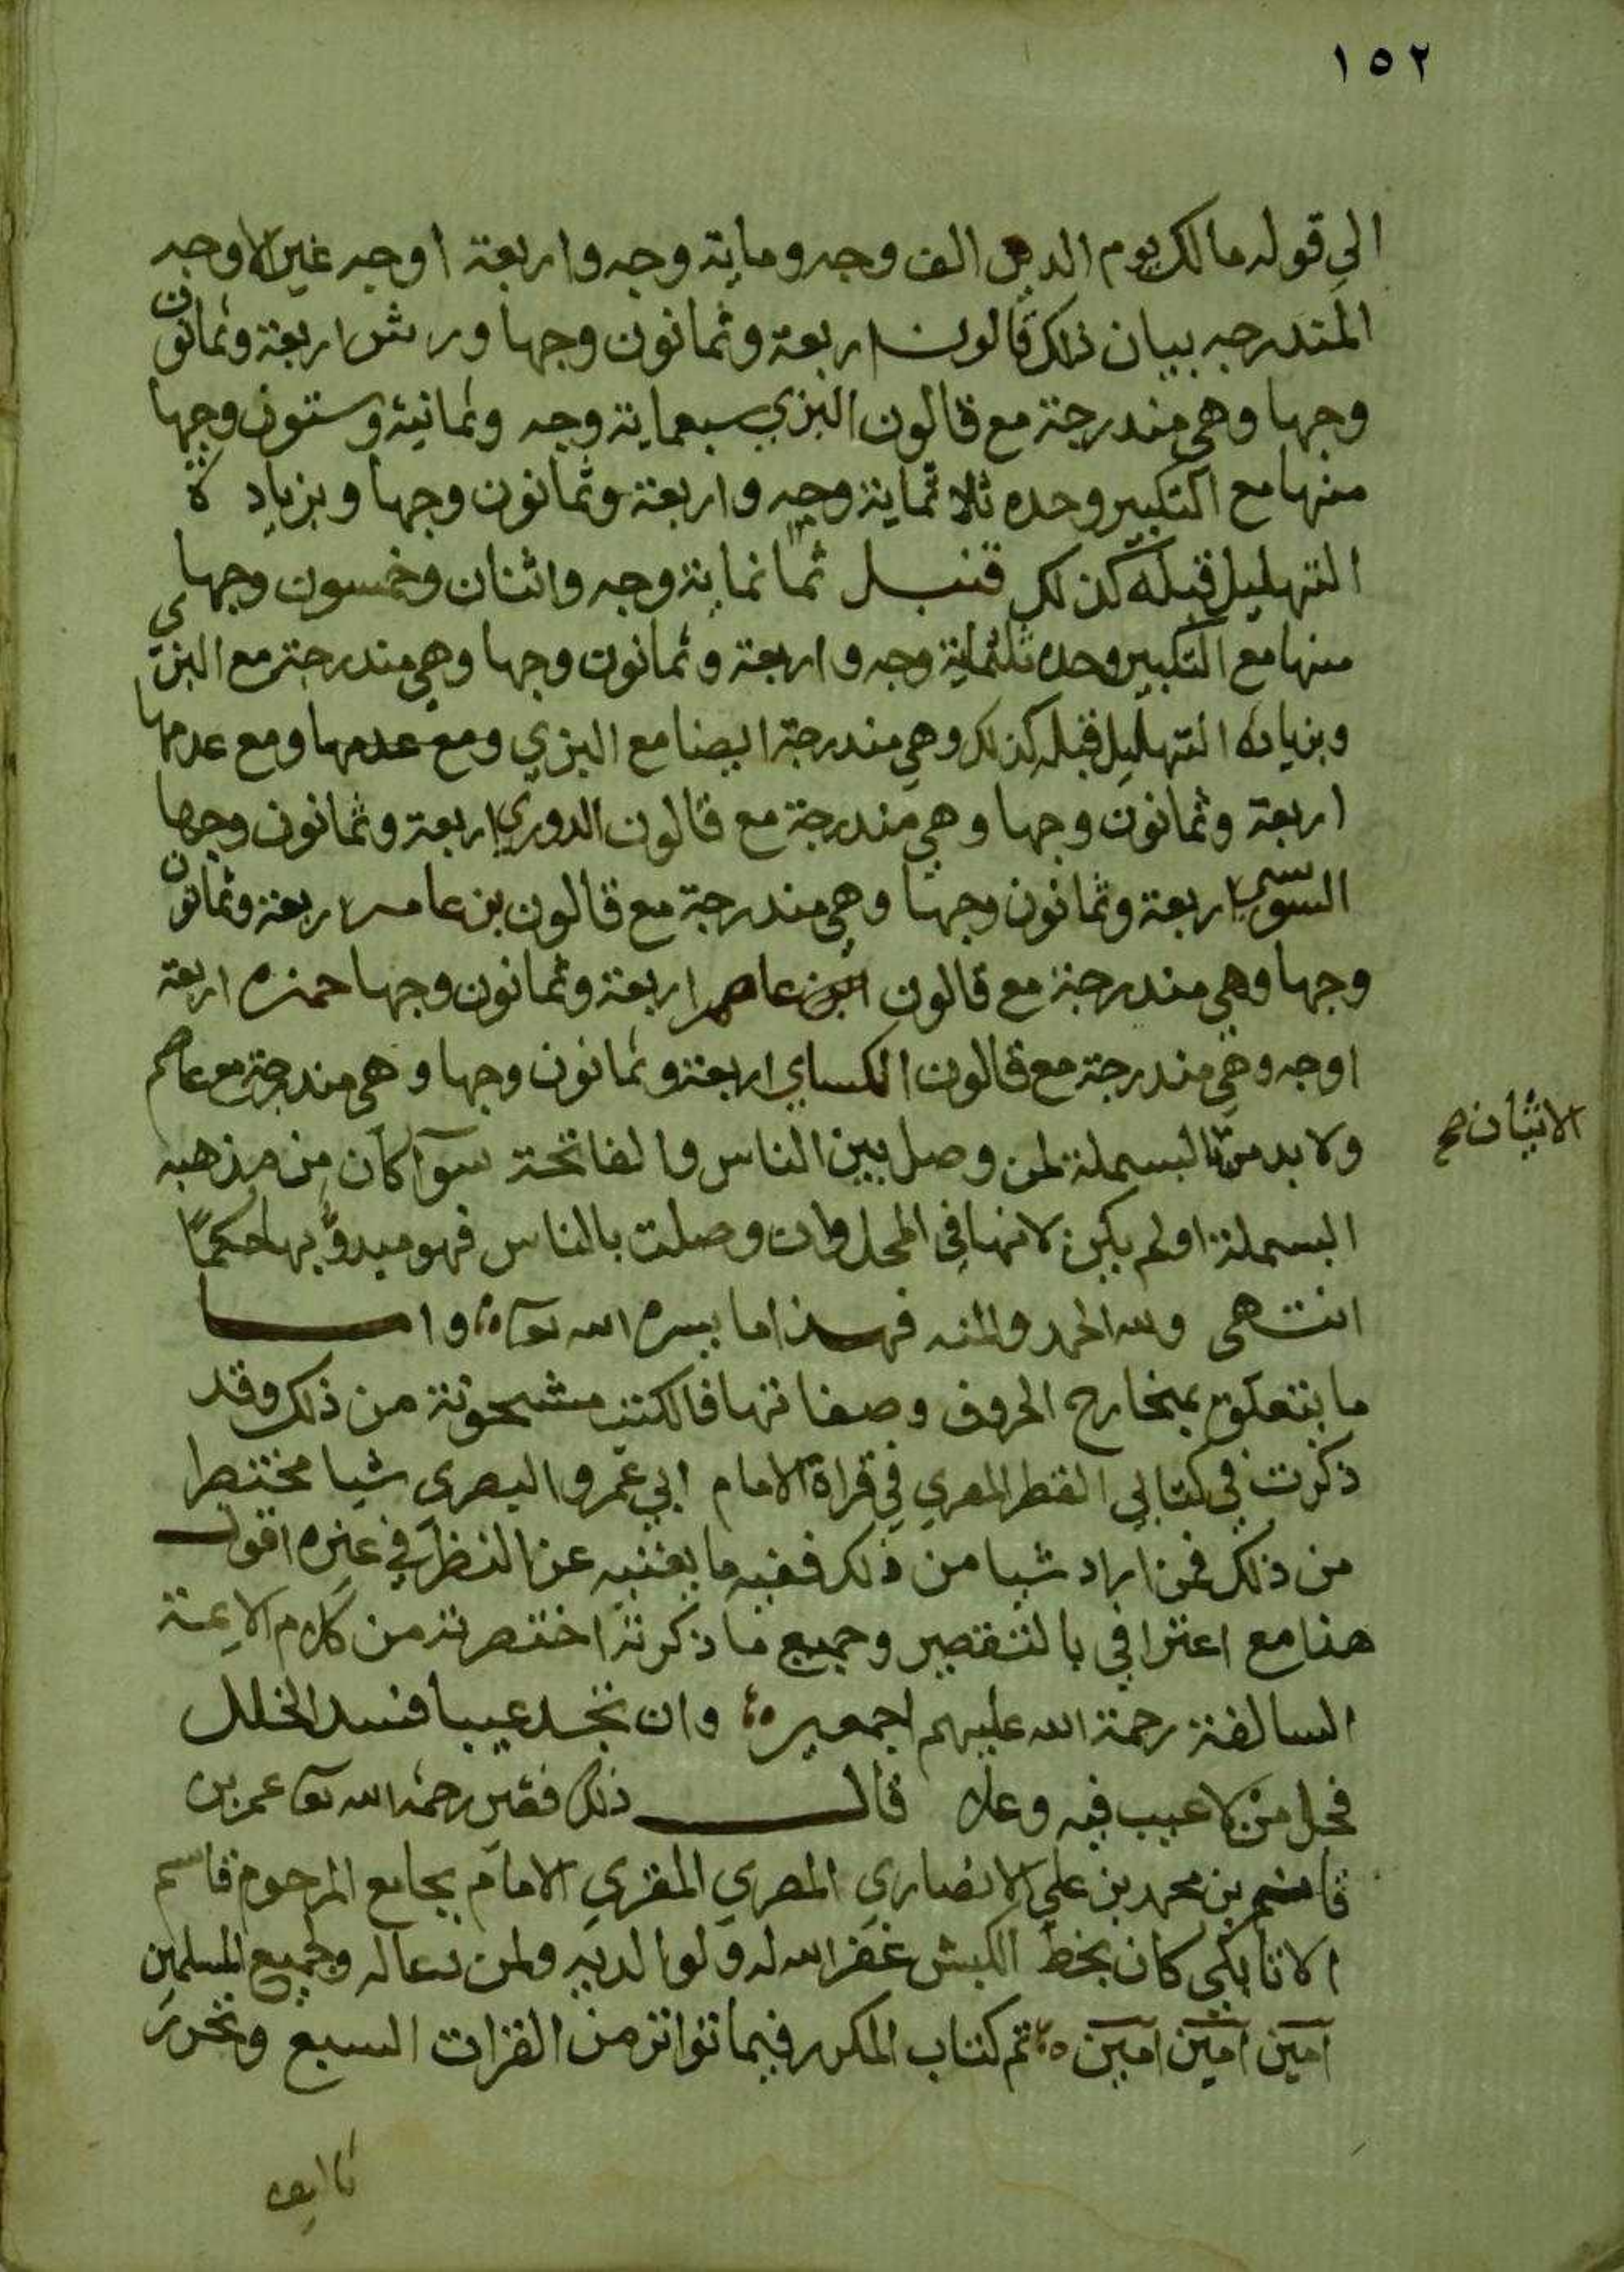 ١٥٢
الى قوله مالك يوم الدين الف وجه وماية وجه واربعة اوجه غير الاوجه
المندرجه ببيان ذلك قالون اربعة وثمانون وجها ورش اربعة وثمانون
وجها وهي مندرجة مع قالون البزي سبعماية وجه وثمانية وستون وجها
منها مع التكبير وحده ثلاثماية وجه واربعة وثمانون وجها وبزيادة
التهليل قبله كذلك قنبل ثمانماية وجه واثنان وخمسون وجها
منها مع التكبير وحده ثلثماية وجه واربعة وثمانون وجها وهي مندرجة مع البزي
وبزيادة التهليل قبله كذلك وهي مندرجة ايضا مع البزي ومع عدمها ومع عدمها
اربعة وثمانون وجها وهي مندرجة مع قالون الدوري اربعة وثمانون وجها
السوسي اربعة وثمانون وجها وهي مندرجة مع قالون بن عامر اربعة وثمانون
وجها وهي مندرجة مع قالون عاصم اربعة وثمانون وجها حمزه اربعة
اوجه وهي مندرجة مع قالون الكساي اربعة وثمانون وجها وهي مندرجة مع عاصم
ولا بد من البسملة لمن وصل بين الناس والفاتحة سوآ كان من مذهبه
الاتيان صح
البسملة اولم يكن لانها في المحل وان وصلت بالناس فهو مبدوّ بها حكمًا
انتهى ولله الحمد والمنه فهذا ما يسره الله تعالى واما
ما يتعلق بمخارج الحروف وصفاتها فالكتب مشحونة من ذلك وقد
ذكرت في كتابي القطر المصري في قراة الامام ابي عمرو البصري شيا مختصرا
من ذلك فمن اراد شيا من ذلك ففيه ما يغنيه عن النظر في غيره اقول
هذا مع اعترافي بالتقصير وجميع ما ذكرته اختصرته من كلام الايمة
السالفة رحمة الله عليهم اجمعين وان تجد عيبا فسد الخلل
فجل من لا عيب فيه وعلا قال ذلك فقير رحمة الله تعالى عمر بن
قاسم بن محمد بن علي الانصاري المصري المقري الامام بجامع المرحوم قاسم
الاتابكي كان بخط الكبش غفر الله له ولوالديه ولمن دعا له وجميع المسلمين
امين امين امين تم كتاب المكرر فيما تواتر من القرات السبع وتحرر